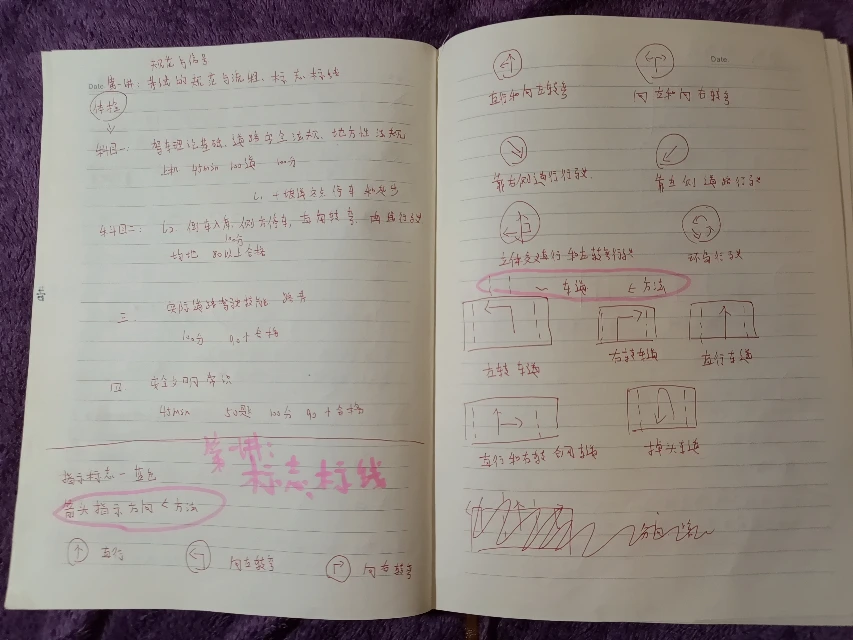 规范与信号
Date 第一讲：基础的规范与法规、标志标线
体检
科目一：驾车理论基础、道路安全法规、地方性法规
上机 45min 100道 100分
C1 + 坡道定点停车和起步
科目二：C2 倒车入库、侧方停车、直角转弯、曲线行驶
100分
场地 80以上合格
三 实际道路驾驶技能 路考
100分 90+合格
四 安全文明常识
45min 50题 100分 90+合格
第一讲：
标志、标线
指示标志－蓝色
箭头指示方向 方法
直行
向左转弯
向右转弯
Date
直行和向左转弯
向左和向右转弯
靠右侧道路行驶
靠左侧道路行驶
立体交叉直行和右转弯行驶
环岛行驶
车道 方法
左转车道
右转车道
直行车道
直行和右转合用车道
掉头车道